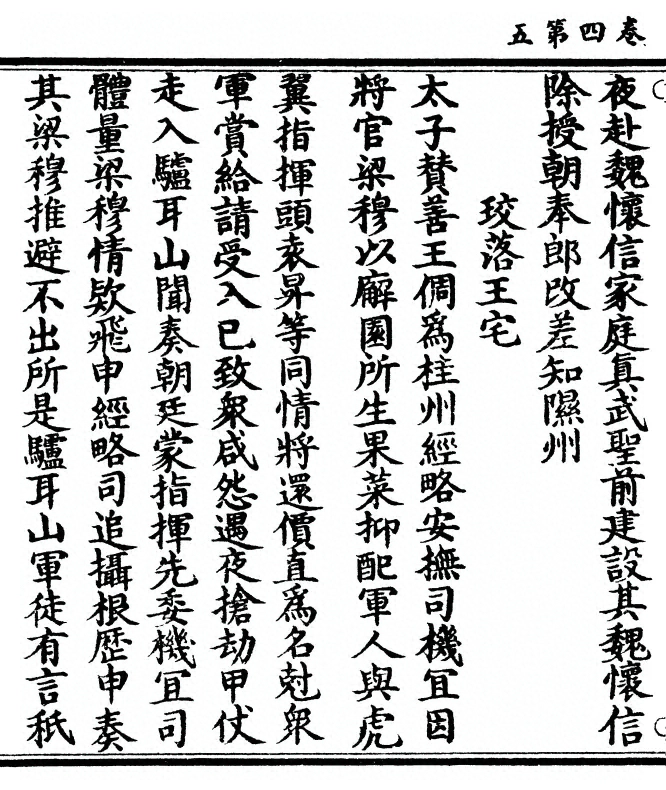 卷四第五
夜赴魏懷信家庭真武聖前建設其魏懷信
除授朝奉郎改差知隰州
玟落王宅
太子賛善王倜爲桂州經略安撫司機冝因
將官梁穆以廨園所生果菜抑配軍人與虎
翼指揮頭袁昇等同情將還價直爲名尅衆
軍賞給請受入已致衆咸怨遇夜搶劫甲仗
走入驢耳山聞奏朝廷蒙指揮先委機冝司
體量梁穆情欵飛申經略司追攝根歷申奏
其梁穆推避不出所是驢耳山軍徒有言秖